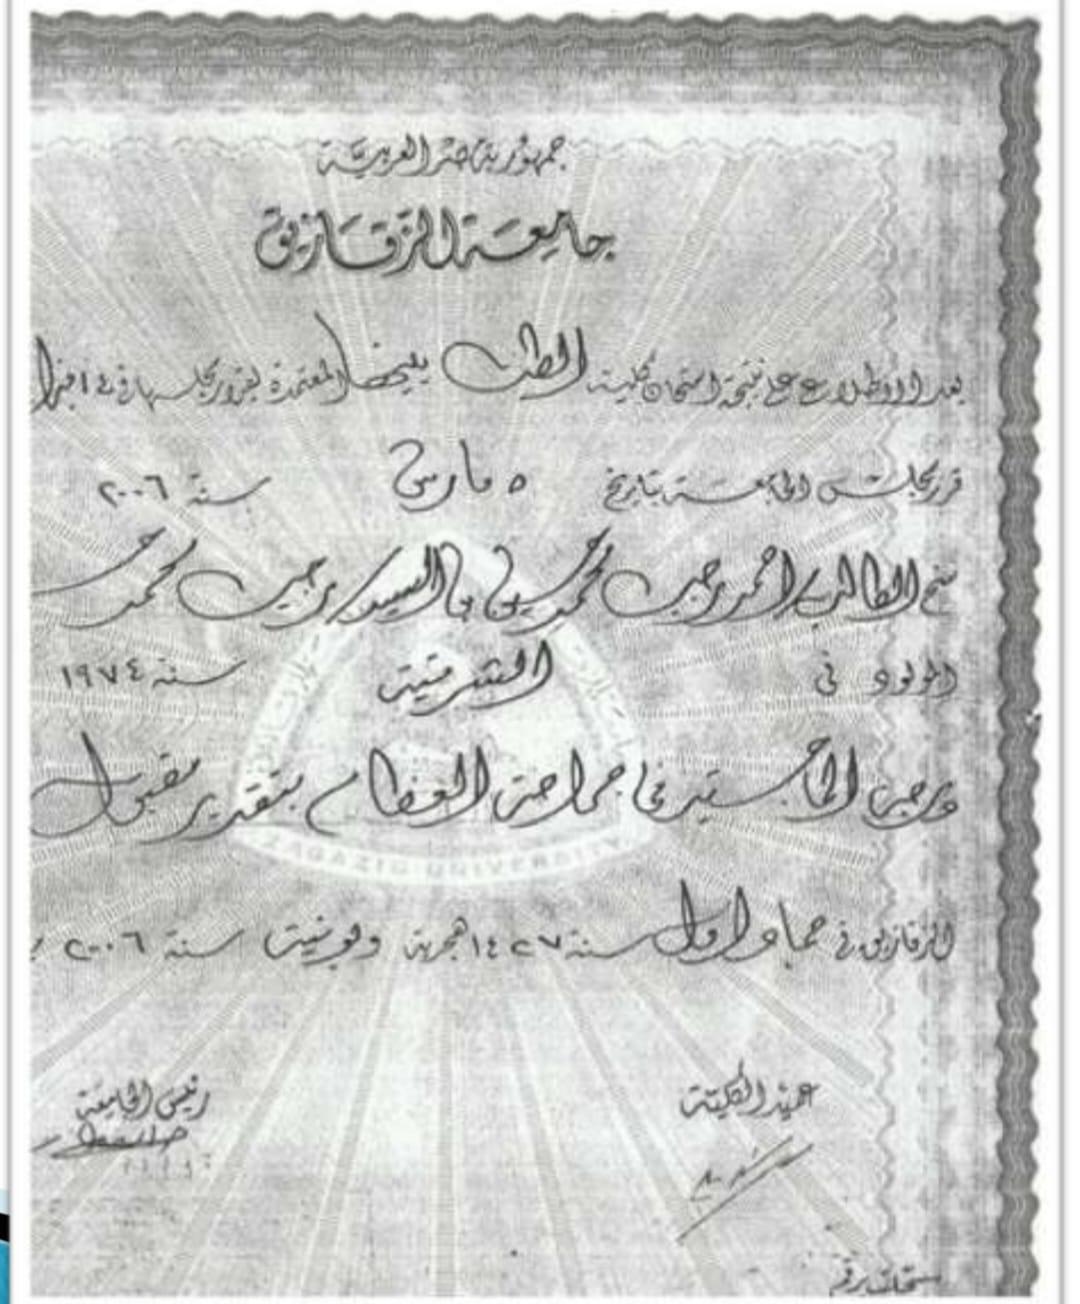 جمهورية مصر العربية
جامعة الزقازيق
بعد الاطلاع على نتيجة امتحان كلية الطب المعتمدة بقرار مجلسها في ١٤ فبراير
قرر مجلس الجامعة بتاريخ ٥ مارس سنة ٢٠٠٦
منح الطالب / احمد رجب محمد السيد رجب محمد
المولود في الشرقية سنة ١٩٧٤
درجة الماجستير في جراحة العظام بتقدير مقبول
الزقازيق في جماد اول سنة ١٤٢٧ هجرية ويونية سنة ٢٠٠٦
عميد الكلية
رئيس الجامعة
ZAGAZIG UNIVERSITY